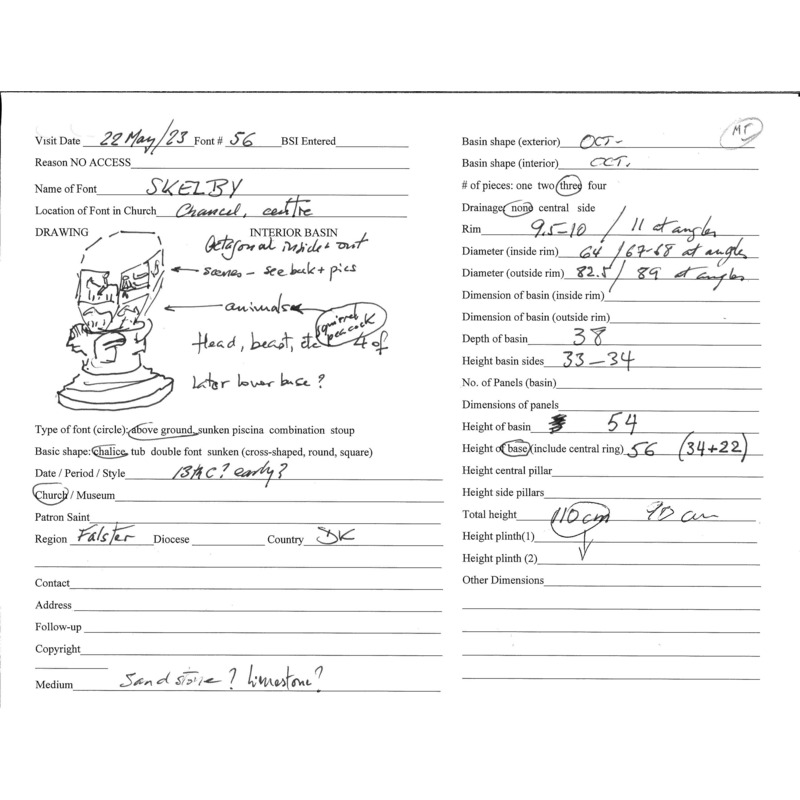 Visit Date 22 May/23 Font # 56 BSI Entered
Reason NO ACCESS
Name of Font SKELBY
Location of Font in Church Chancel, centre
DRAWING INTERIOR BASIN
Octagonal inside & out
scenes – see bulk + pics
animals
squirrel
peacock
Head, beast, etc 4 of
Later lower base?
Type of font (circle): above ground, sunken piscina combination stoup
Basic shape: chalice, tub double font sunken (cross-shaped, round, square)
Date / Period / Style 13thC? early?
Church / Museum
Patron Saint
Region Falster Diocese Country DK
Contact
Address
Follow-up
Copyright
Medium Sandstone? limestone?
MT
Basin shape (exterior) OCT-
Basin shape (interior) OCT.
# of pieces: one two three four
Drainage: none central side
Rim 9.5-10 / 11 at angles
Diameter (inside rim) 64 / 67-68 at angles
Diameter (outside rim) 82.5 / 89 at angles
Dimension of basin (inside rim)
Dimension of basin (outside rim)
Depth of basin 38
Height basin sides 33-34
No. of Panels (basin)
Dimensions of panels
Height of basin 54
Height of base (include central ring) 56 (34+22)
Height central pillar
Height side pillars
Total height 110cm 90 cm
Height plinth(1)
Height plinth (2)
Other Dimensions